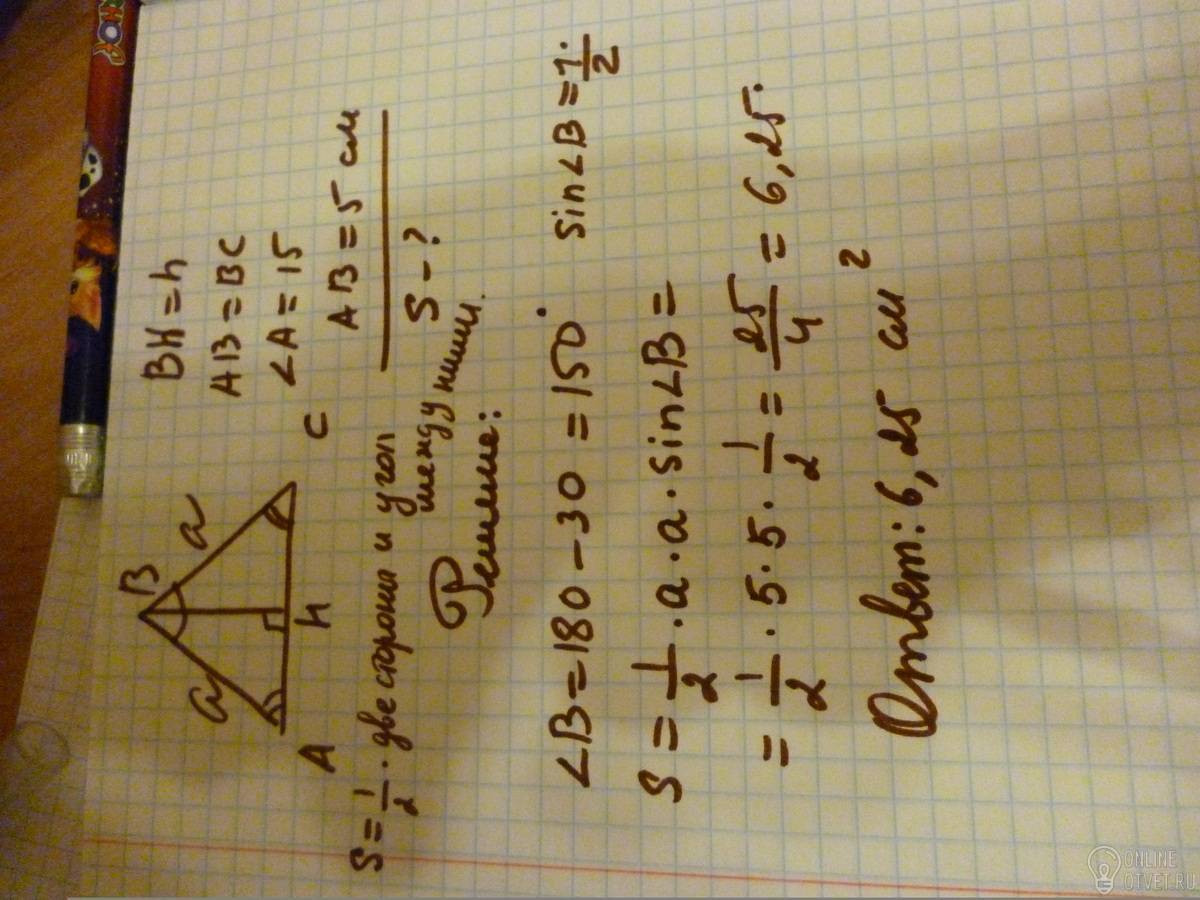 B
a
a
A
h
C
BH = h
AB = BC
∠A = 15
AB = 5 см
S - ?
S = 1/2 · две стороны и угол
между ними.
Решение:
∠B = 180 - 30 = 150° sin∠B = 1/2
S = 1/2 · a · a · sin∠B =
= 1/2 · 5 · 5 · 1/2 = 25/4 = 6,25.
Ответ: 6,25 см²
ONLINE
OTVET.RU